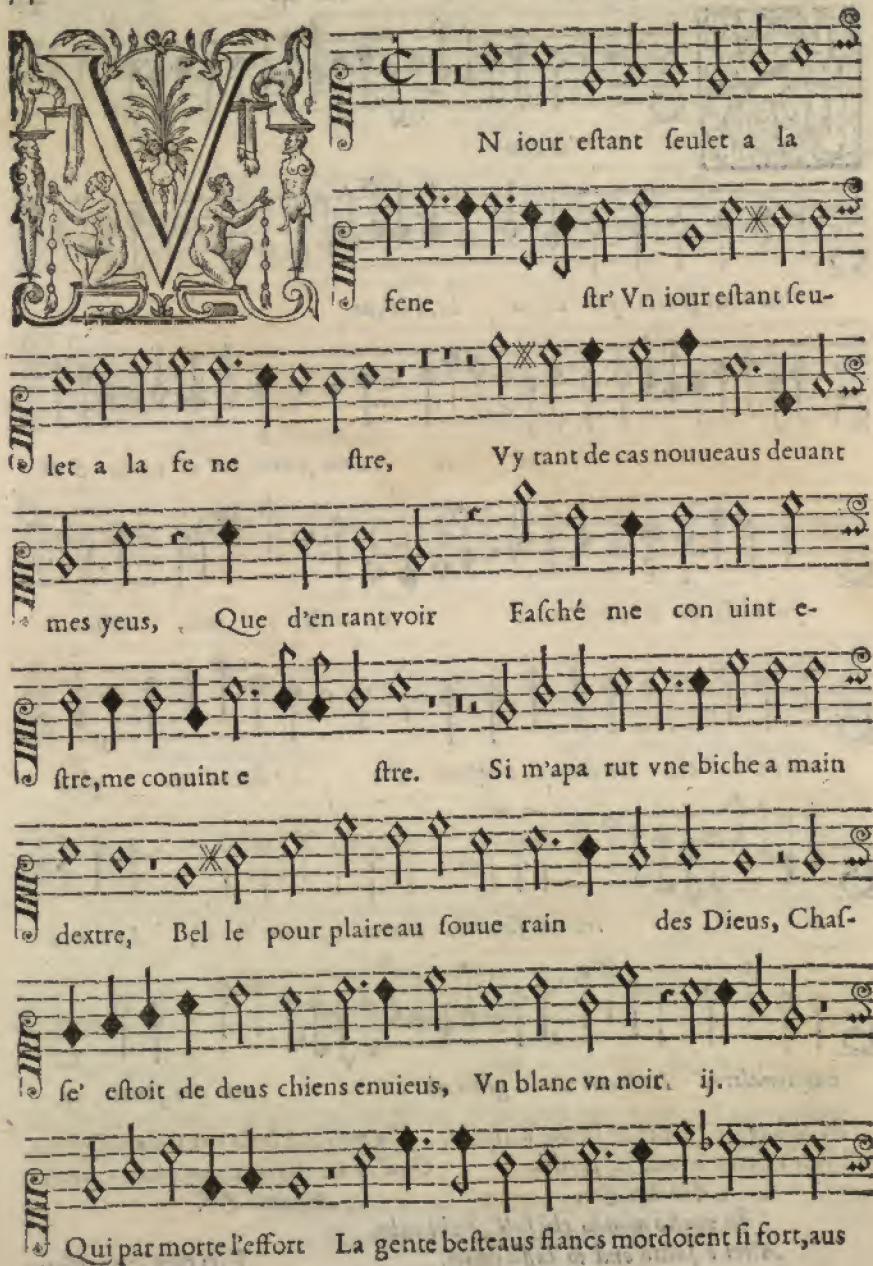 V
N iour eſtant ſeulet a la
fene ſtr' Vn iour eſtant ſeu-
let a la fe ne ſtre, Vy tant de cas nouueaus deuant
mes yeus, Que d'en tant voir Faſché me con uint e-
ſtre, me conuint e ſtre. Si m'apa rut vne biche a main
dextre, Bel le pour plaire au ſouue rain des Dieus, Chaſ-
ſe' eſtoit de deus chiens enuieus, Vn blanc vn noir. ij.
Qui par morte l'effort La gente beſte aus flancs mordoient ſi fort, aus